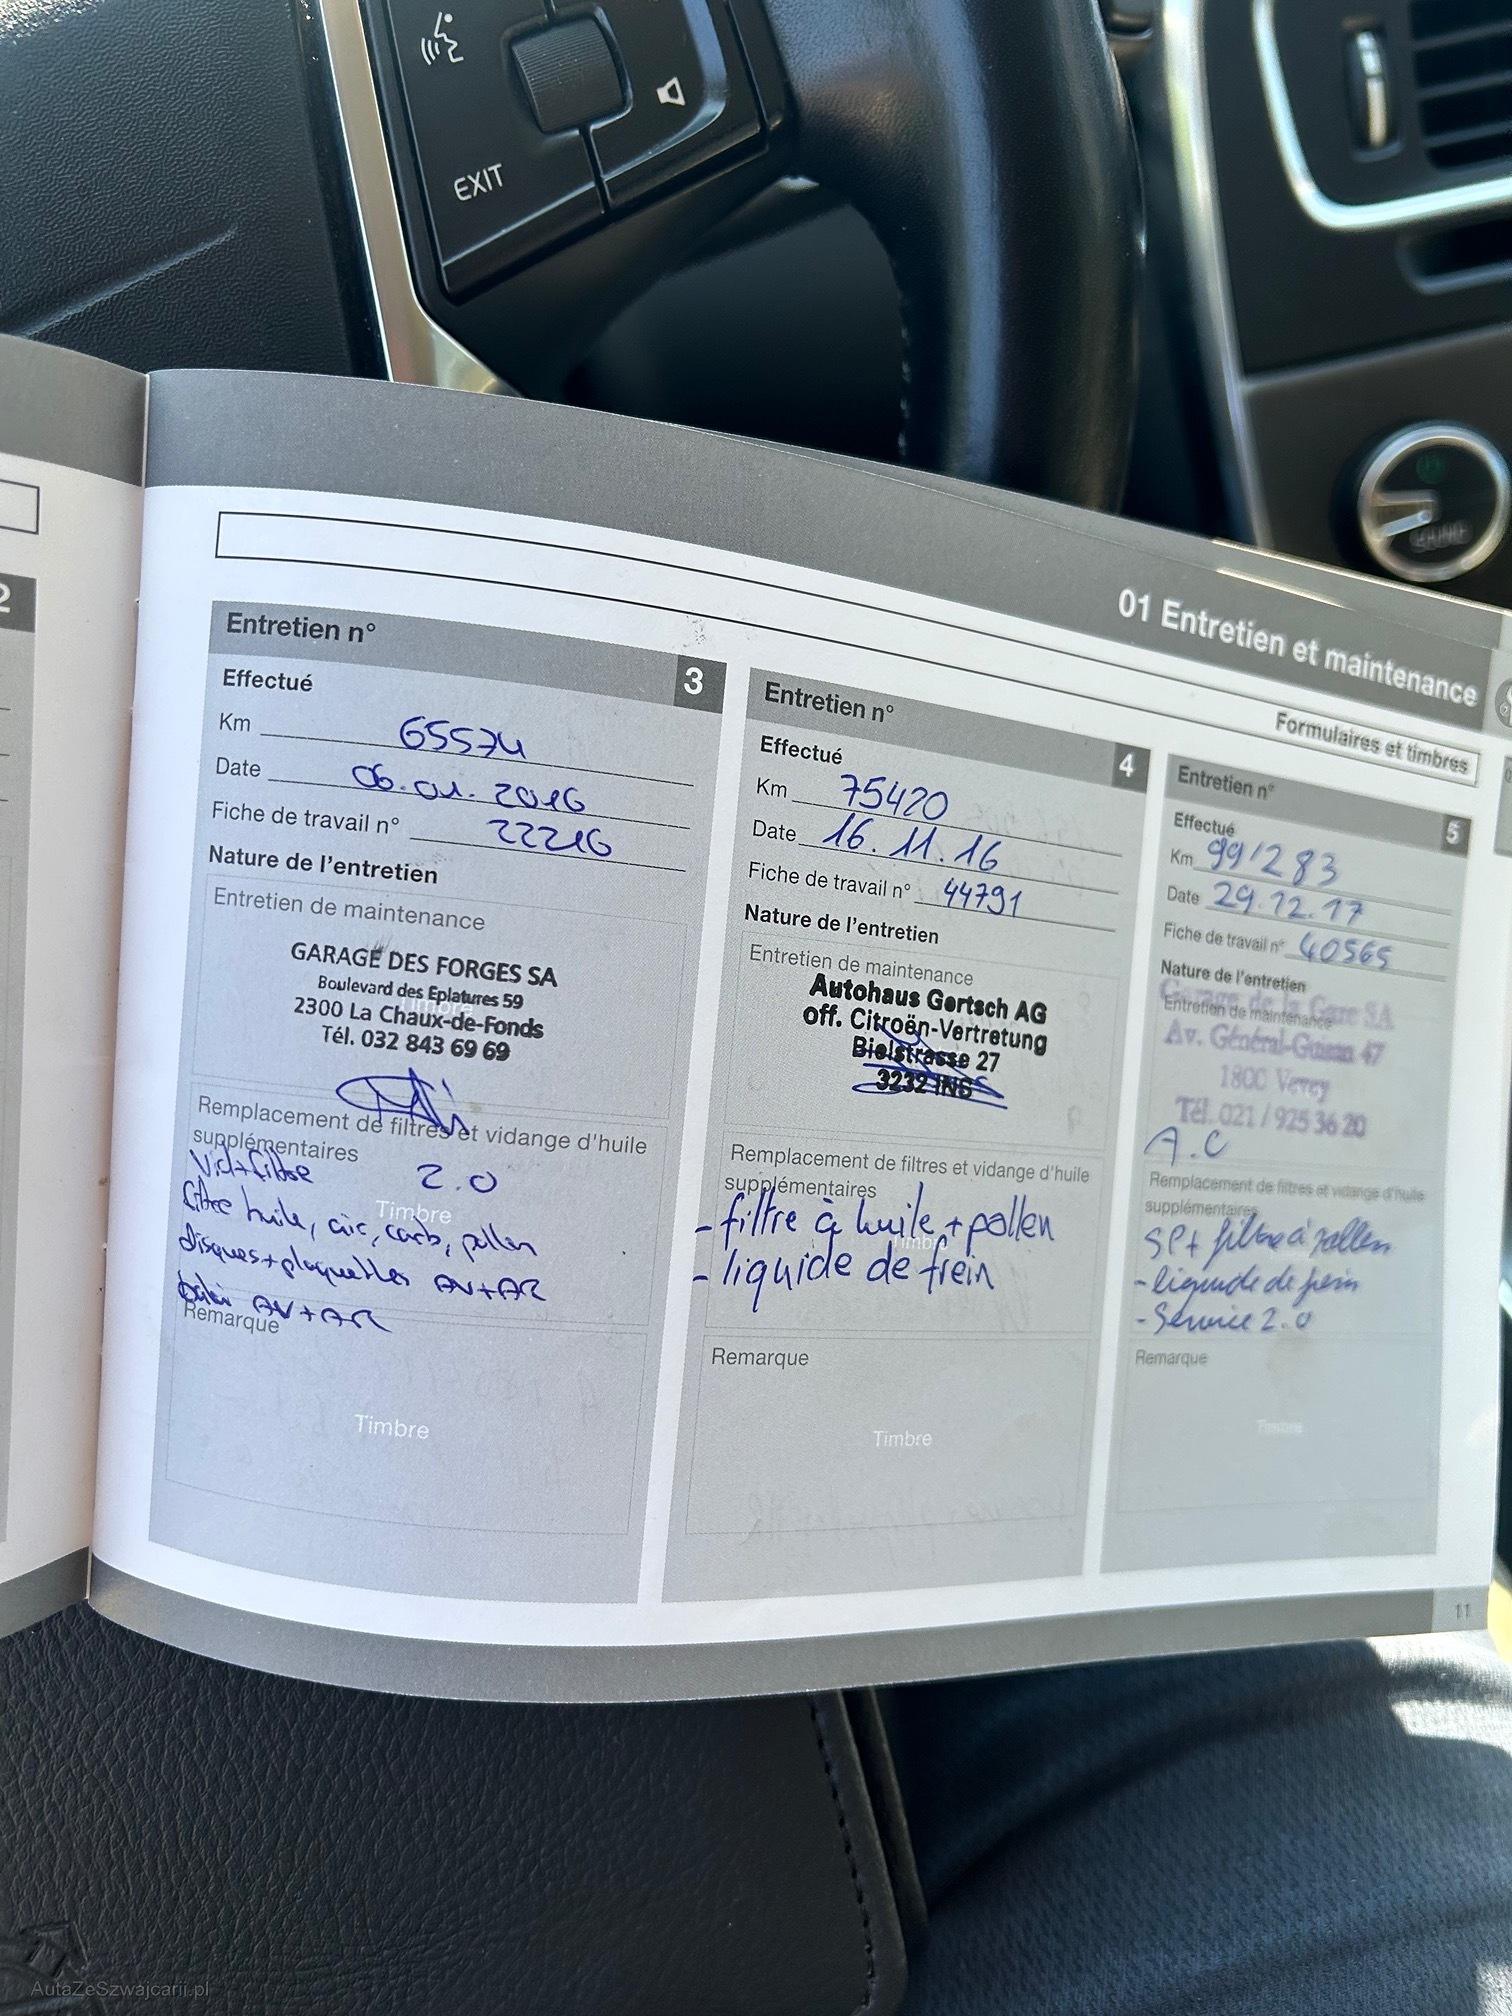 EXIT
2
01 Entretien et maintenance
Formulaires et timbres
Entretien n°
3
Effectué
Km 65574
Date 06.01.2016
Fiche de travail n° 22216
Nature de l'entretien
Entretien de maintenance
GARAGE DES FORGES SA
Boulevard des Eplatures 59
2300 La Chaux-de-Fonds
Tél. 032 843 69 69
Remplacement de filtres et vidange d'huile
supplémentaires
Vid+filtre 2.0
filtre huile, air, carb, pollen
Timbre
disques+plaquettes AV+AR
AV+AR
Remarque
Timbre
Entretien n°
4
Effectué
Km 75420
Date 16.11.16
Fiche de travail n° 44791
Nature de l'entretien
Entretien de maintenance
Autohaus Gertsch AG
off. Citroën-Vertretung
Bielstrasse 27
3232 INS
Remplacement de filtres et vidange d'huile
supplémentaires
- filtre à huile + pollen
Timbre
- liquide de frein
Remarque
Timbre
Entretien n°
5
Effectué
Km 99'283
Date 29.12.17
Fiche de travail n° 40565
Nature de l'entretien
Garage de la Gare SA
Entretien de maintenance
Av. Général-Guisan 47
1800 Vevey
Tél. 021 / 925 36 20
A.C
Remplacement de filtres et vidange d'huile
supplémentaires
SP+ filtre à pollen
- liquide de frein
- Service 2.0
Remarque
Timbre
11
AutaZeSzwajcarii.pl